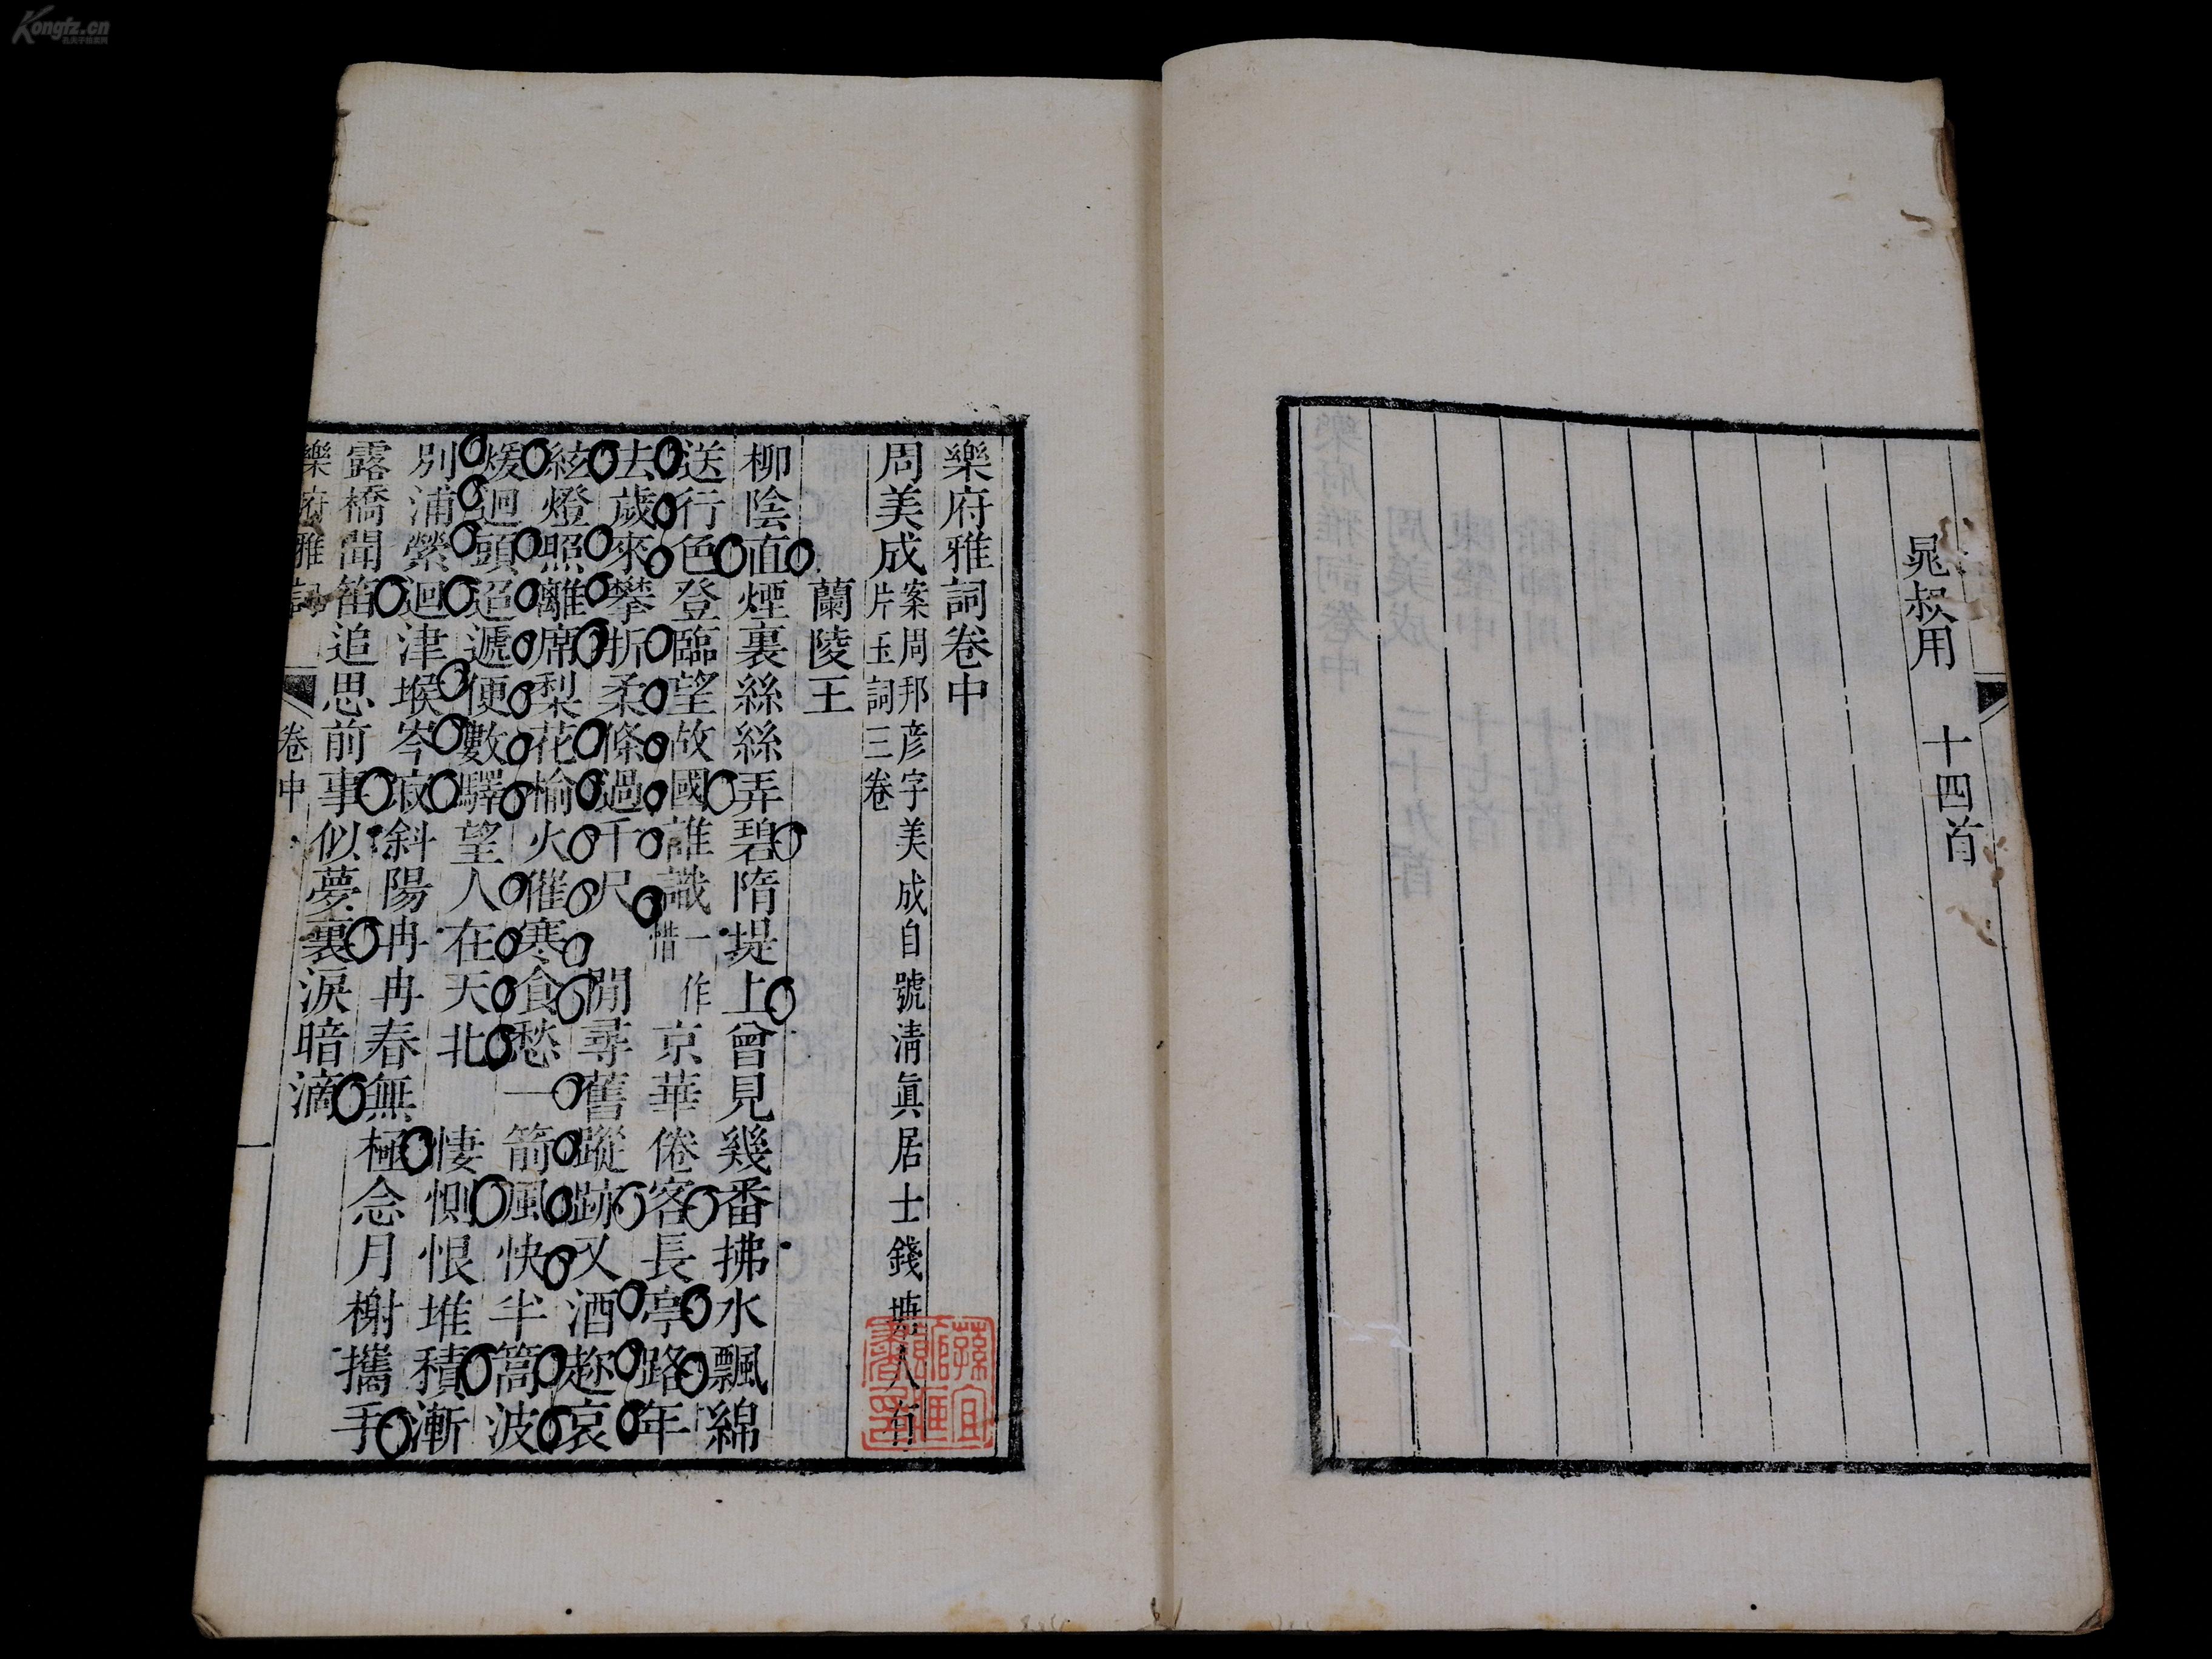 晁叔用 十四首
樂府雅詞卷中
周美成 案周邦彦字美成自號淸眞居士錢塘人有
片玉詞三卷
蘭陵王
柳陰直煙裏絲絲弄碧隋堤上曾見幾番拂水飄綿
送行色登臨望故國誰識一作惜京華倦客長亭路年
去歲來攀折柔條過千尺 閒尋舊蹤跡又酒趂哀
絃燈照離席梨花榆火催寒食愁一箭風快半篙波
煖迴頭迢遞便數驛望人在天北 悽惻恨堆積漸
別浦縈迴津堠岑寂斜陽冉冉春無極念月榭攜手
露橋聞笛追思前事似夢裏淚暗滴
樂府雅詞 卷中 一
Kongfz.cn